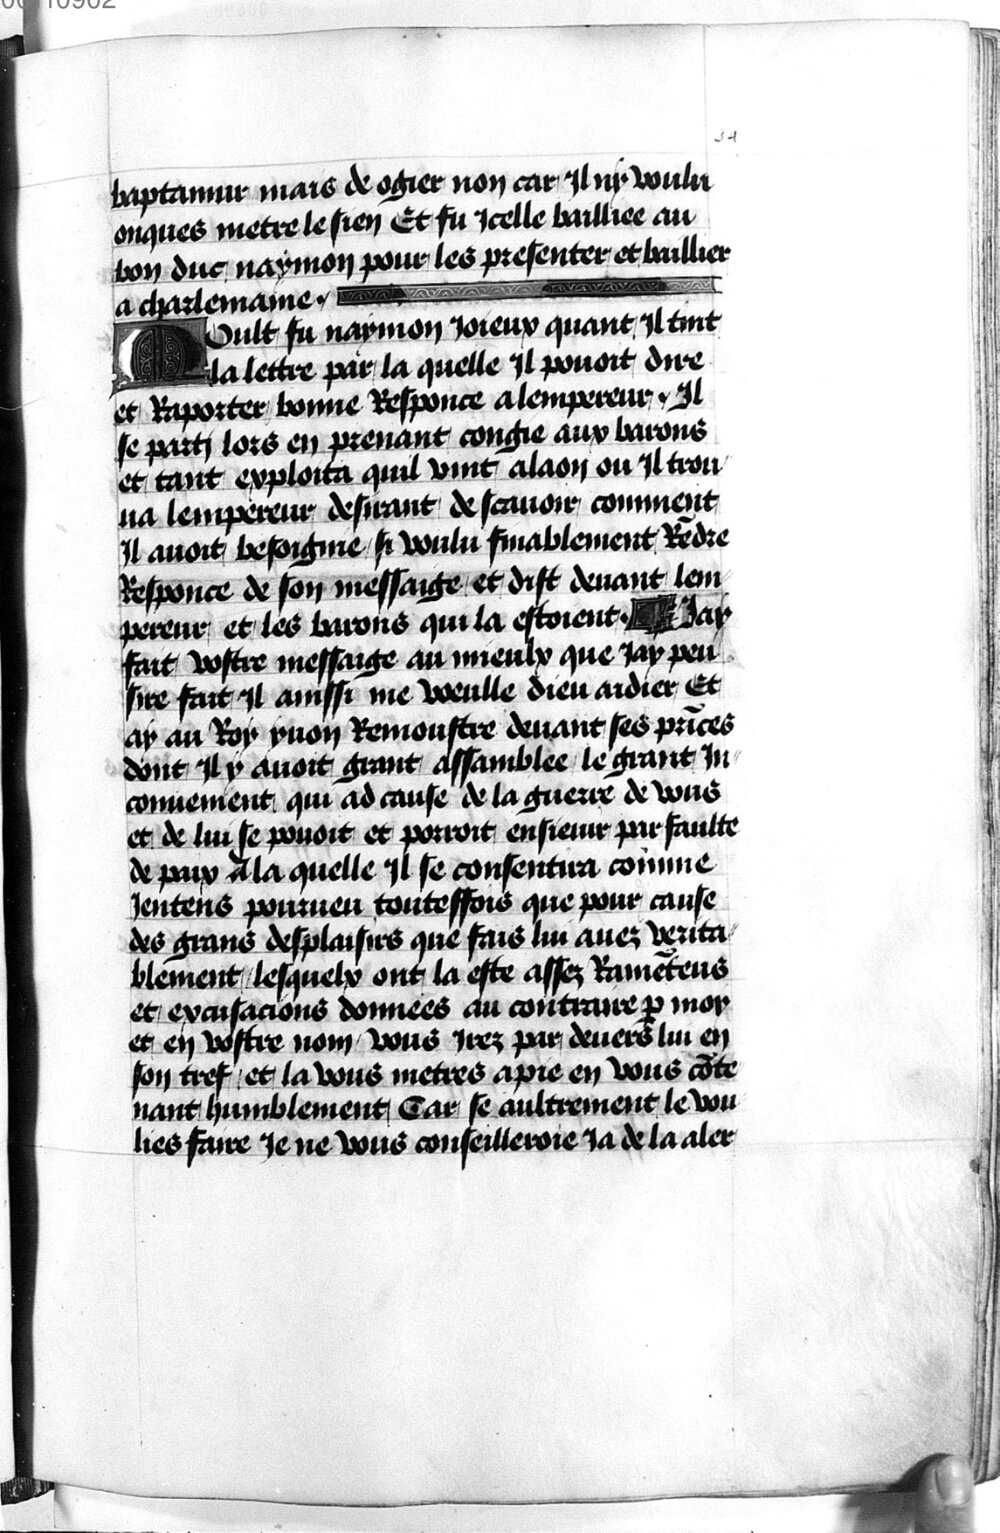 34
baptamur mais de ogier non car Il ny voulu
onques metre le sien Et fu Icelle bailliee au
bon duc naymon pour les presenter et baillier
a charlemaine
Moult fu naymon Joieux quant Il tint
la lettre par la quelle Il pouoit dire
et Raporter bonne Responce a lempereur Il
se parti lors en prenant congie aux barons
et tant exploita quil vint a laon ou Il trou
ua lempereur desirant de scauoir comment
Il auoit besoigne si voulu finablement Rēdre
Responce de son messaige et dist deuant lem
pereur et les barons qui la estoient Jay
fait vostre messaige au mieulx que Jay peu
sire fait Il ainssi me veulle dieu aidier Et
ay au Roy yuon Remoustre deuant ses prīces
dont Il y auoit grant assamblee le grant In
conuenient qui ad cause de la guerre de vous
et de lui se pouoit et porroit ensieuir par faulte
de paix A la quelle Il se consentira cōmme
Jentens pourueu touteffois que pour cause
des grans desplaisirs que fais lui auez verita
blement lesquelx ont la este assez Ramēteus
et excusacions donnees au contraire p̱ moy
et en vostre nom vous Irez par deuers lui en
son tref et la vous metres a pie en vous cōte
nant humblement Car se aultrement le vou
lies faire Je ne vous conseilleroie Ja de la aler